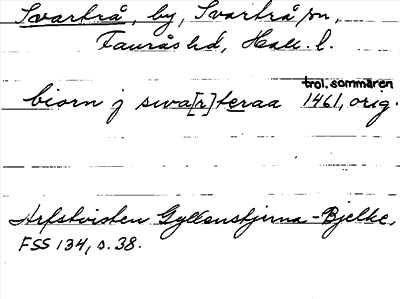 Svartrå, by, Svartrå sn,
Fauråshd, Hall. l.
trol. sommaren
biorn j swa[r]teraa 1461, orig.
Arfstvisten Gyllenstjirna-Bjelke,
FSS 134, s. 38.